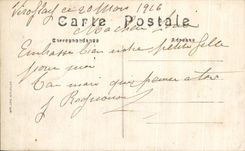 Viroflay ce 20 Mars 1916
Carte Postale
Ma chère
Correspondance Adresse
Embrasse bien notre petite fille
pour moi
Ton mari qui pense a toi
J